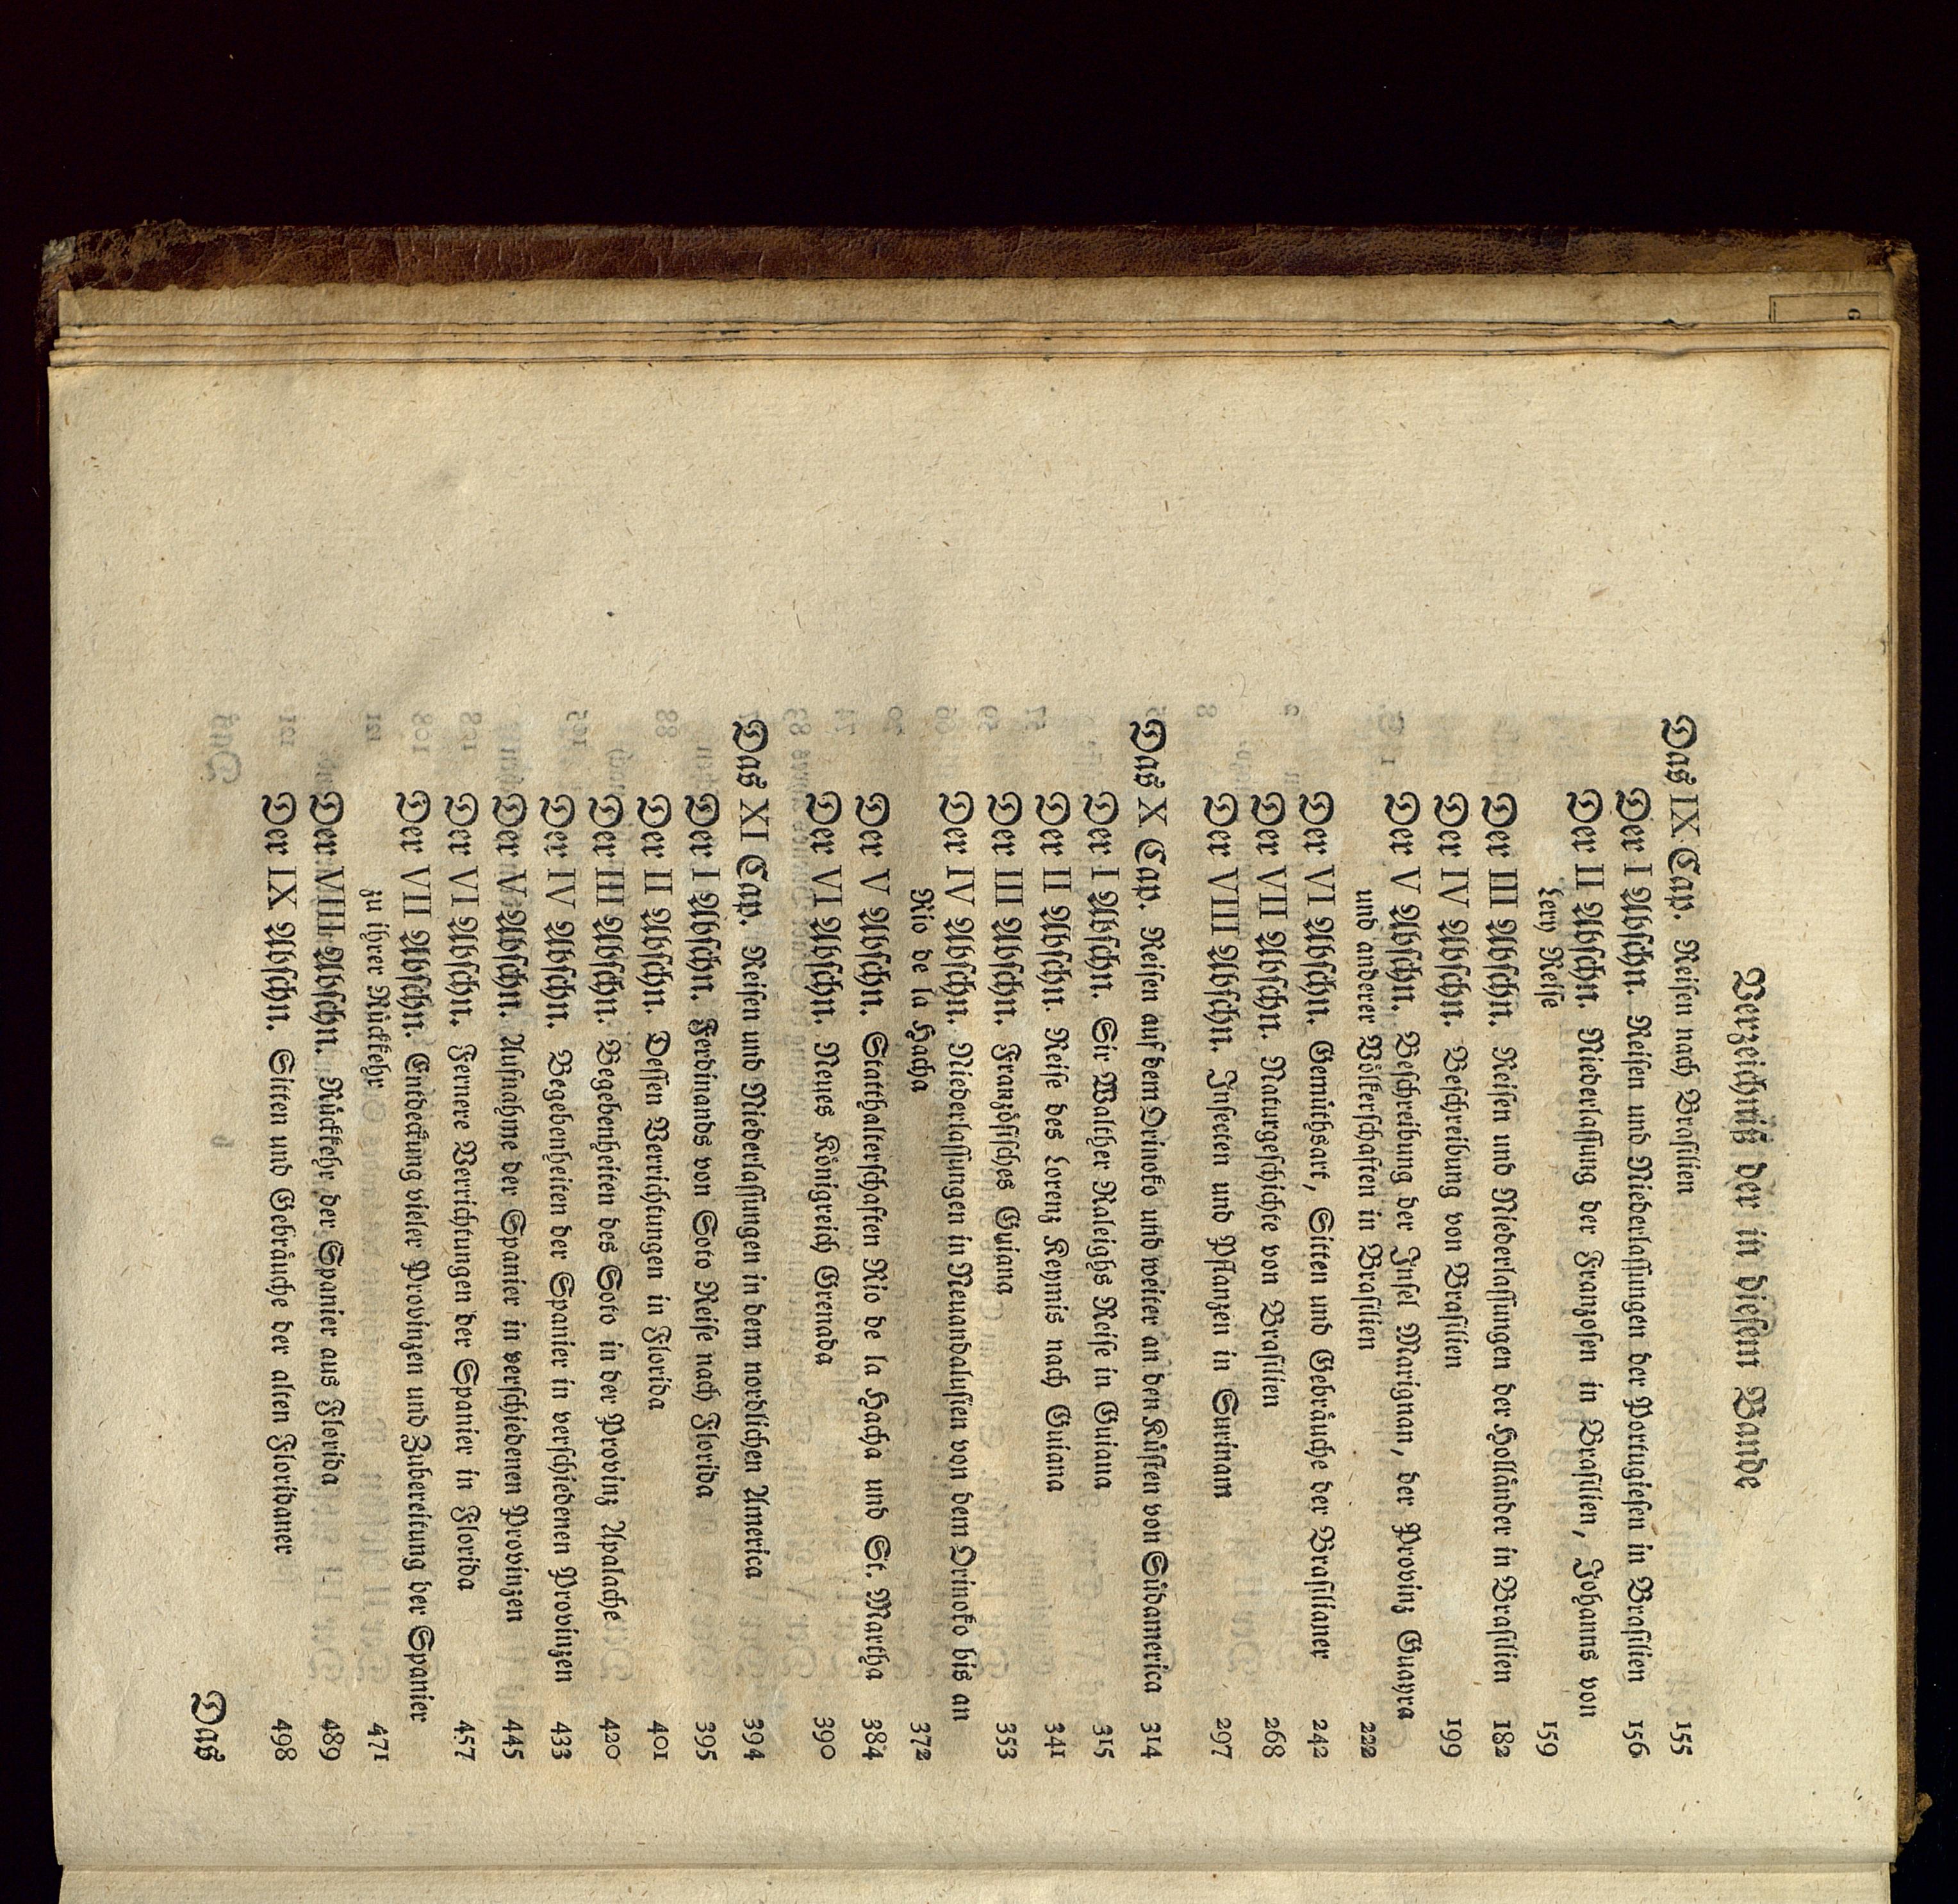 Verzeichniß der in diesem Bande
Das IX Cap. Reisen nach Brasilien 155
Der I Abschn. Reisen und Niederlassungen der Portugiesen in Brasilien 156
Der II Abschn. Niederlassung der Franzosen in Brasilien, Johanns von
Lery Reise 159
Der III Abschn. Reisen und Niederlassungen der Holländer in Brasilien 182
Der IV Abschn. Beschreibung von Brasilien 199
Der V Abschn. Beschreibung der Insel Marignan, der Provinz Guayra
und anderer Völkerschaften in Brasilien 222
Der VI Abschn. Gemüthsart, Sitten und Gebräuche der Brasilianer 242
Der VII Abschn. Naturgeschichte von Brasilien 268
Der VIII Abschn. Insecten und Pflanzen in Surinam 297
Das X Cap. Reisen auf dem Orinoko und weiter an den Küsten von Südamerica 314
Der I Abschn. Sir Walther Raleighs Reise in Guiana 315
Der II Abschn. Reise des Lorenz Keymis nach Guiana 341
Der III Abschn. Französisches Guiana 353
Der IV Abschn. Niederlassungen in Neuandalusien von dem Orinoko bis an
Rio de la Hacha 372
Der V Abschn. Statthalterschaften Rio de la Hacha und St. Martha 384
Der VI Abschn. Neues Königreich Grenada 390
Das XI Cap. Reisen und Niederlassungen in dem nordlichen America 394
Der I Abschn. Ferdinands von Soto Reise nach Florida 395
Der II Abschn. Dessen Verrichtungen in Florida 401
Der III Abschn. Begebenheiten des Soto in der Provinz Apalache 420
Der IV Abschn. Begebenheiten der Spanier in verschiedenen Provinzen 433
Der V Abschn. Aufnahme der Spanier in verschiedenen Provinzen 445
Der VI Abschn. Fernere Verrichtungen der Spanier in Florida 457
Der VII Abschn. Entdeckung vieler Provinzen und Zubereitung der Spanier
zu ihrer Rückkehr 471
Der VIII Abschn. Rückkehr der Spanier aus Florida 489
Der IX Abschn. Sitten und Gebräuche der alten Floridaner 498
Das